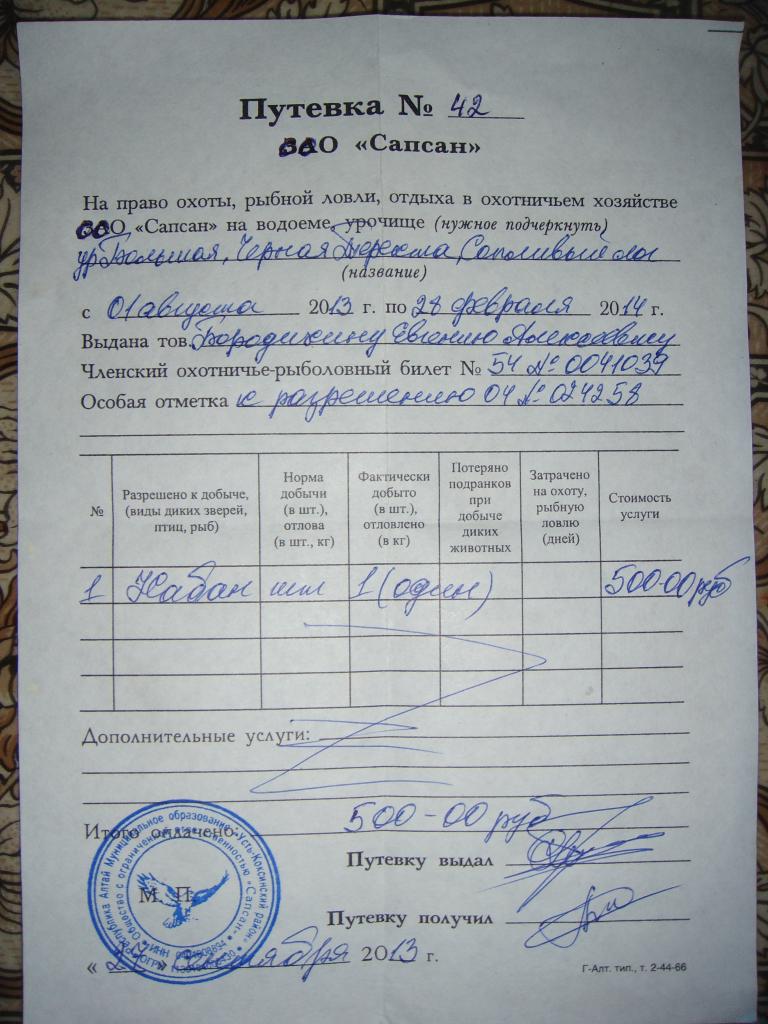 Путевка № 42
ООО «Сапсан»
На право охоты, рыбной ловли, отдыха в охотничьем хозяйстве
ООО «Сапсан» на водоеме, урочище (нужное подчеркнуть)
ур. Большая, Черная Терехта, Сопливый лог
(название)
с 01 августа 2013 г. по 28 февраля 2014 г.
Выдана тов. Бородихину Евгению Алексеевичу
Членский охотничье-рыболовный билет № 54 № 0041039
Особая отметка к разрешению 04 № 024258
№ Разрешено к добыче, (виды диких зверей, птиц, рыб) Норма добычи (в шт.), отлова (в шт., кг) Фактически добыто (в шт.), отловлено (в кг) Потеряно подранков при добыче диких животных Затрачено на охоту, рыбную ловлю (дней) Стоимость услуги
1 Кабан шт 1 (один) 500-00 руб
Дополнительные услуги:
Итого оплачено: 500-00 руб
Путевку выдал
М. П.
Путевку получил
Республика Алтай Муниципальное образование «Усть-Коксинский район»
Общество с ограниченной ответственностью «Сапсан»
ИНН
ОГРН
2013 г.
Г-Алт. тип., т. 2-44-66